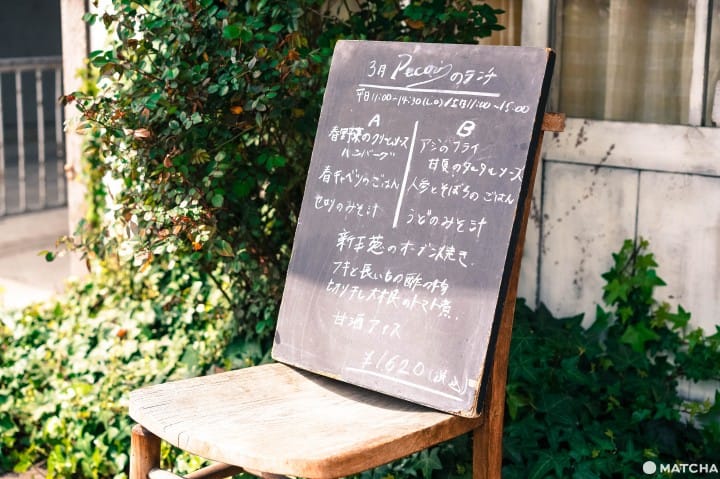 3月 Pecoriのランチ
平日11:00~14:30(L.O) 土日11:00~15:00
A
春野菜のクリームソース
ハンバーグ
春キャベツのごはん
セロリのみそ汁
B
アジのフライ
甘夏のタルタルソース
人参とそぼろのごはん
うどのみそ汁
新玉葱のオーブン焼き
フキと長いもの酢の物
切り干し大根のトマト煮
甘酒アイス
¥1,620(税込)
MATCHA